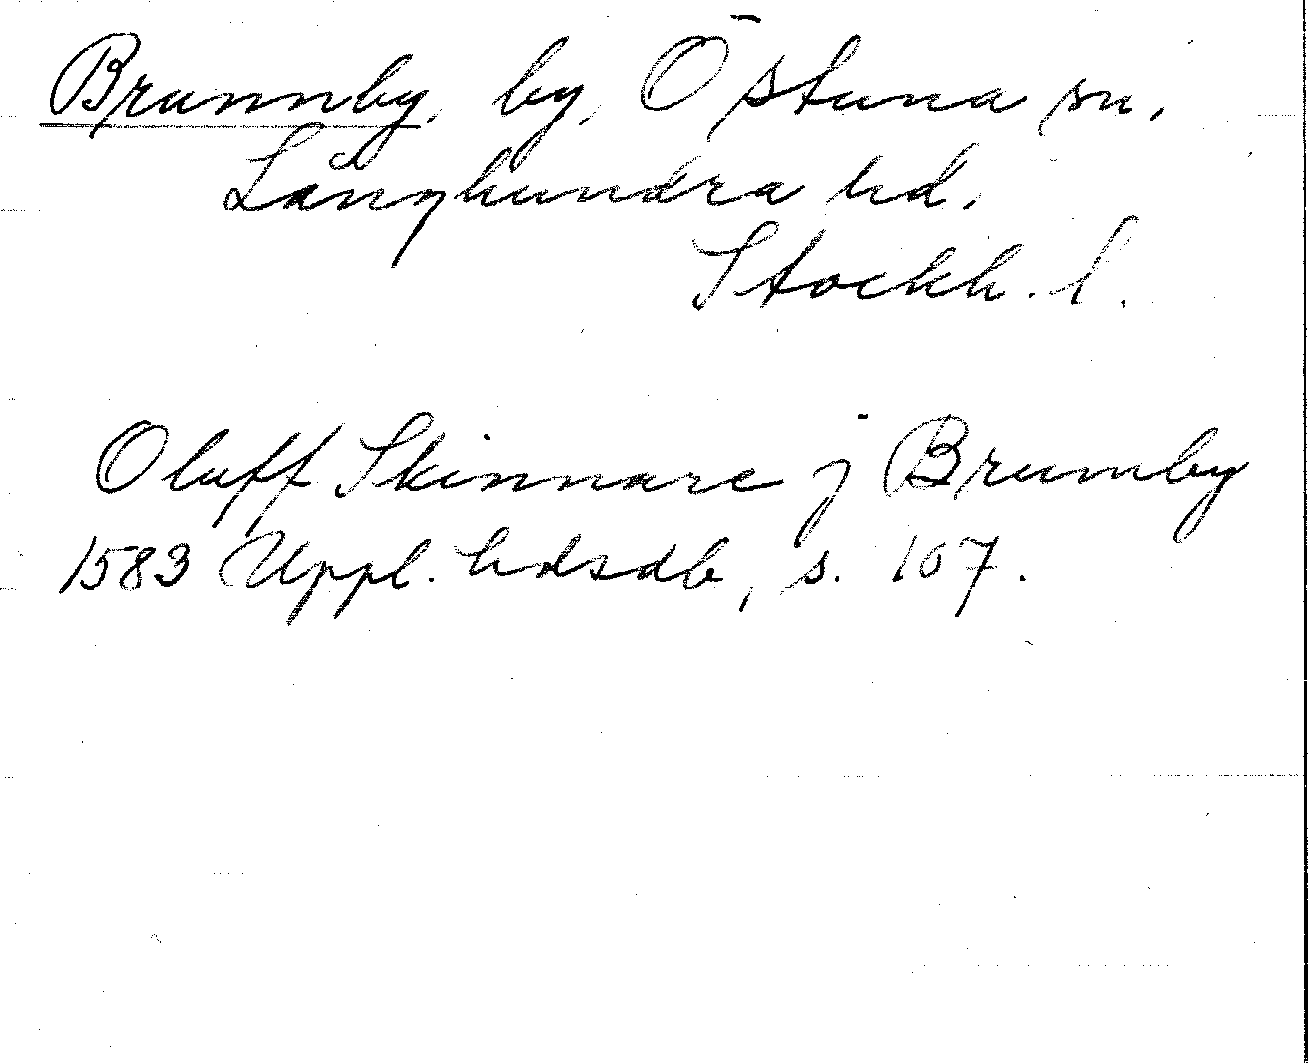 Brunnby, by, Östuna sn.
Långhundra hd.
Stockh. l.
Oluff Skinnare j Brumby
1583 Uppl. hdsdb, s. 107.